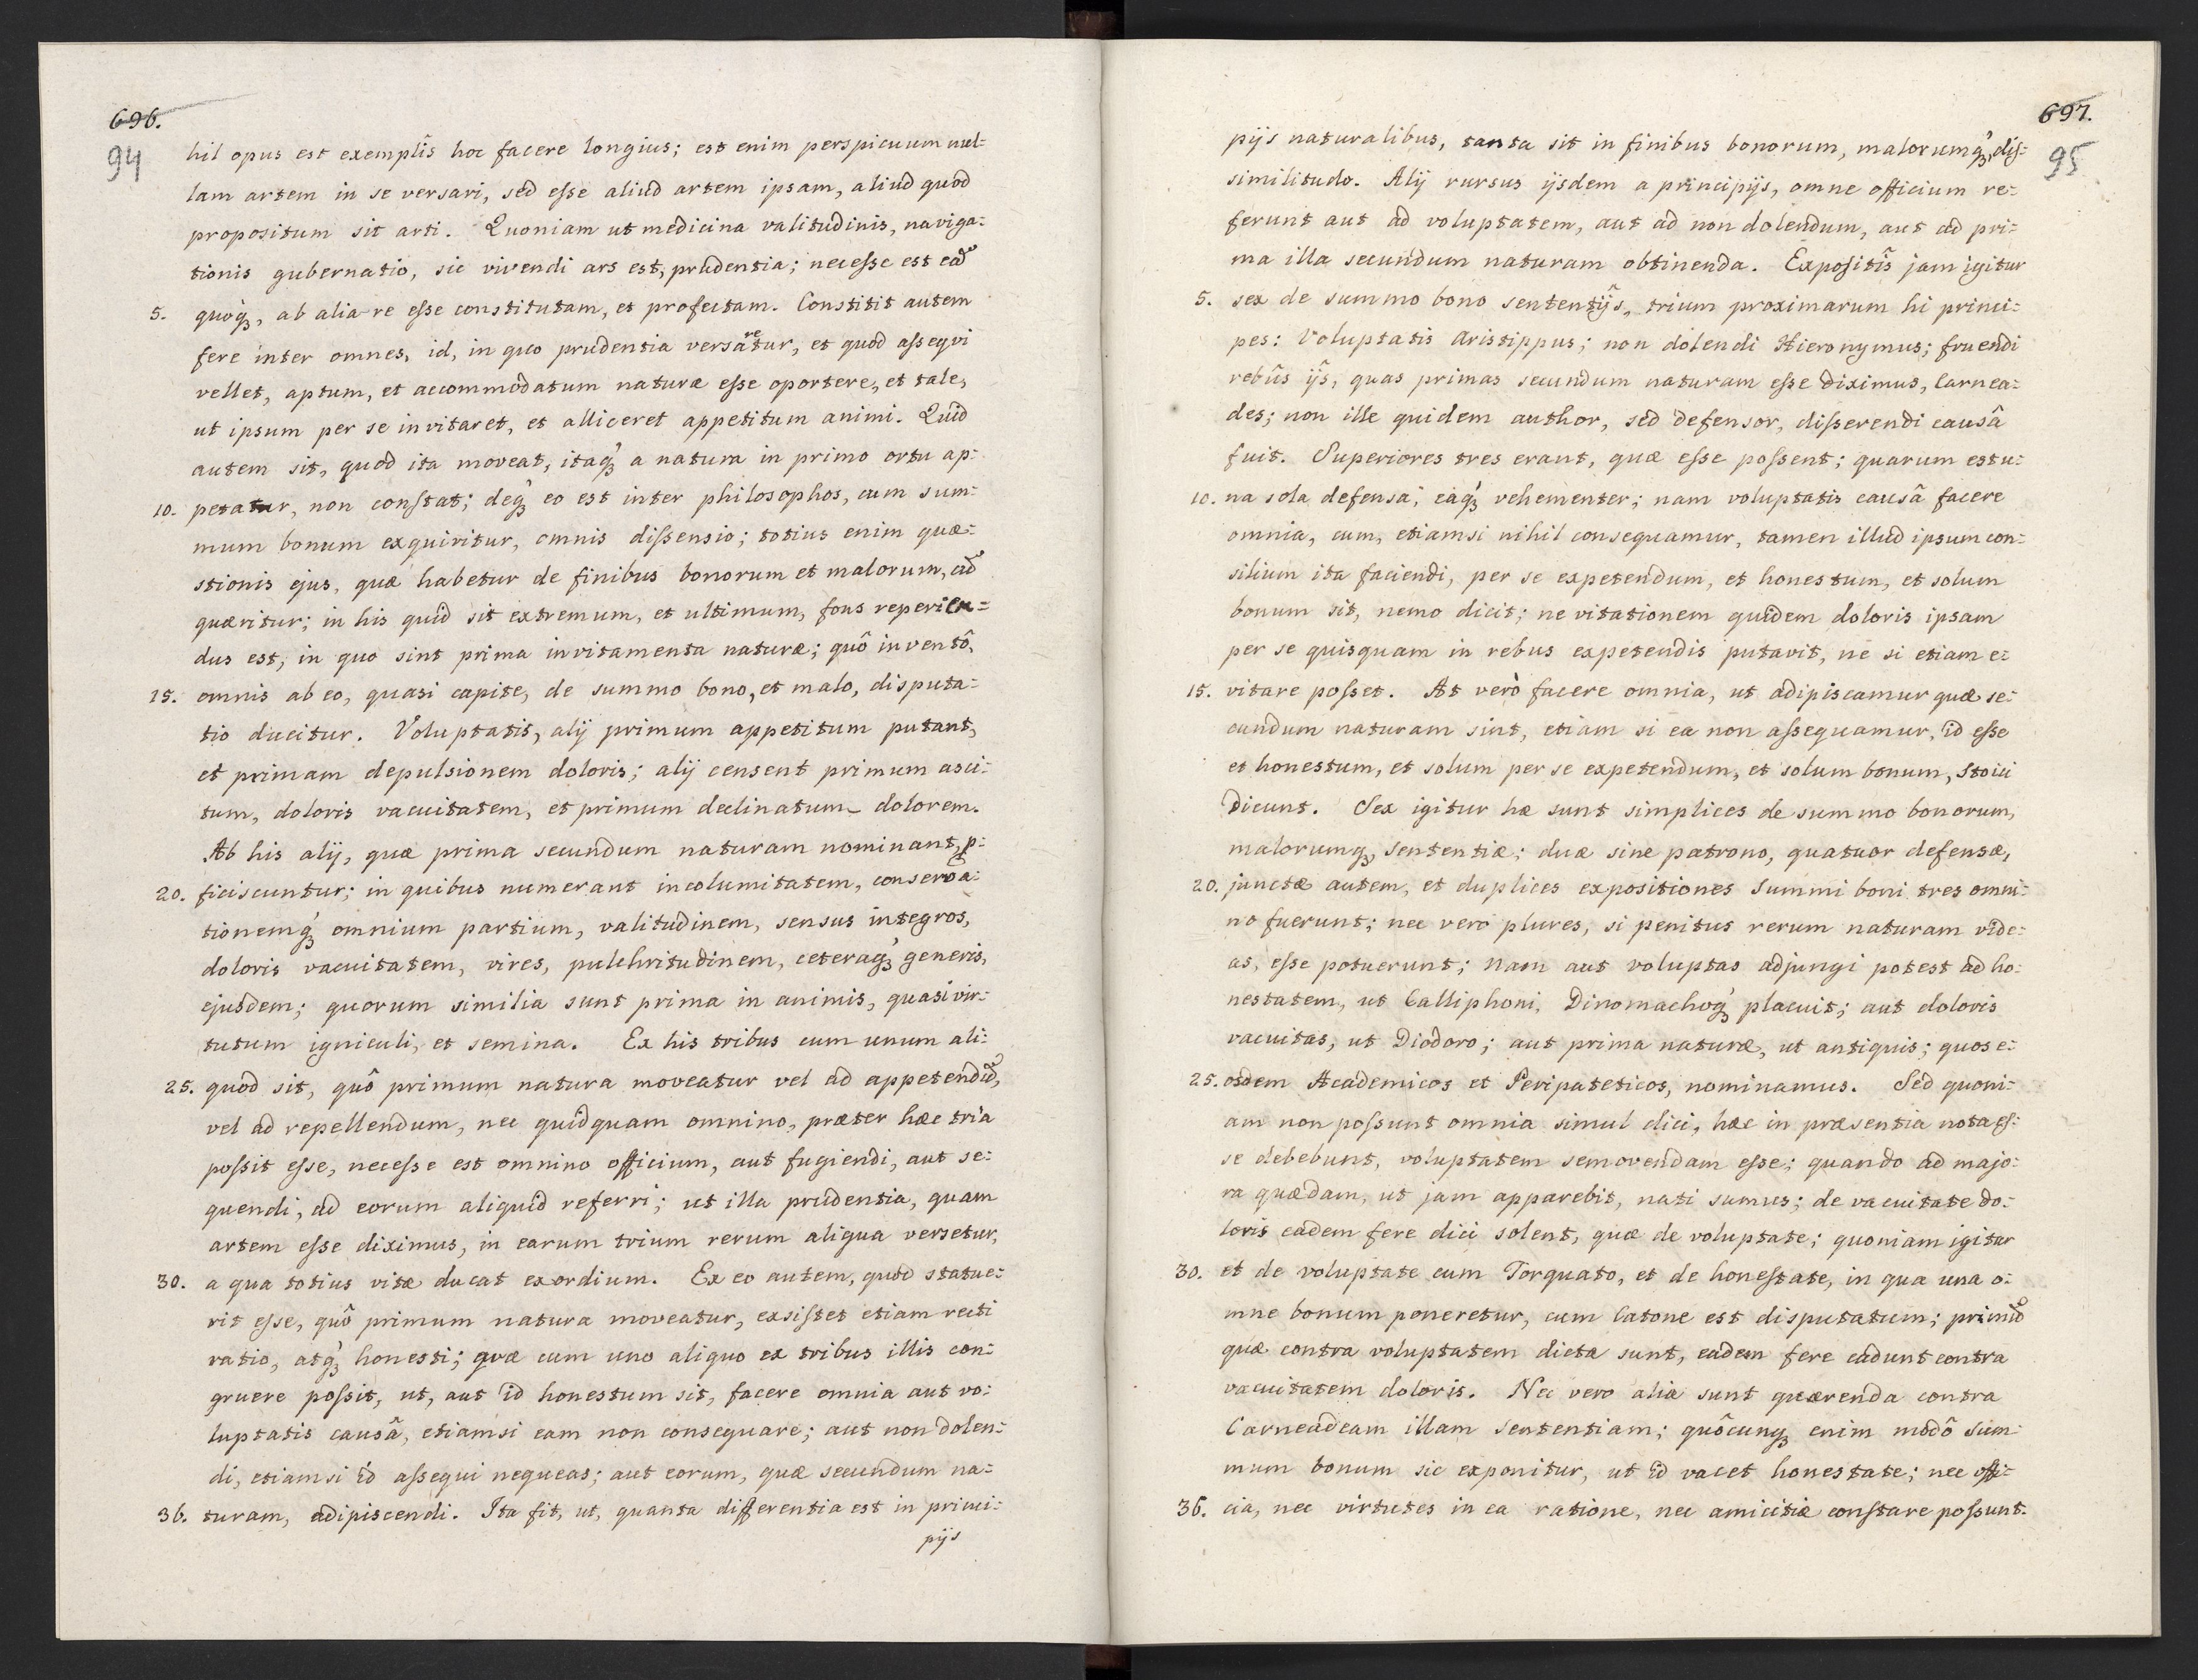 696.
94
hil opus est exemplîs hoc facere longius; est enim perspicuum nul=
lam artem in se versari, sed esse aliud artem ipsam, aliud quod
propositum sit arti. Quoniam ut medicina valitudinis, naviga=
tionis gubernatio, sic vivendi ars est, prudentia; necesse est eã
5. quoq́ꝫ, ab alia re esse constitutam, et profectam. Constitit autem
fere inter omnes, id, in quo prudentia versaretur, et quod assequi
vellet, aptum, et accommodatum naturæ esse oportere, et tale,
ut ipsum per se invitaret, et alliceret appetitum animi. Quid
autem sit, quod ita moveat, itaq́ꝫ a natura in primo ortu ap=
10. petatur, non constat; deq́ꝫ eo est inter philosophos, cum sum=
mum bonum exquiritur, omnis dissensio; totius enim quæ=
stionis ejus, quæ habetur de finibus bonorum et malorum, cũ
quæritur; in his quid sit extremum, et ultimum, fons reperien=
dus est, in quo sint prima invitamenta naturæ; quô inventô,
15. omnis ab eo, quasi capite, de summo bono, et malo, disputa=
tio ducitur. Voluptatis, alij primum appetitum putant,
et primam depulsionem doloris; alij censent primum asci=
tum, doloris vacuitatem, et primum declinatum dolorem.
Ab his alij, quæ prima secundum naturam nominant, ꝓ=
20. ficiscuntur; in quibus numerant incolumitatem, conserva=
tionemq́ꝫ omnium partium, valitudinem, sensus integros,
doloris vacuitatem, vires, pulchritudinem, ceteraq́ꝫ generis,
ejusdem; quorum similia sunt prima in animis, quasi vir=
tutum igniculi, et semina. Ex his tribus cum unum ali=
25. quod sit, quô primum natura moveatur vel ad appetendũ,
vel ad repellendum, nec quidquam omnino, præter hæc tria
possit esse, necesse est omnino officium, aut fugiendi, aut se=
quendi, ad eorum aliquid referri; ut illa prudentia, quam
artem esse diximus, in earum trium rerum aliqua versetur,
30. a qua totius vitæ ducat exordium. Ex eo autem, quod statue=
rit esse, quô primum natura moveatur, exsistet etiam recti
ratio, atq́ꝫ honesti; quæ cum uno aliquo ex tribus illis con=
gruere possit, ut, aut id honestum sit, facere omnia aut vo=
luptatis causâ, etiamsi eam non consequare; aut non dolen=
di, etiamsi id assequi nequeas; aut eorum, quæ secundum na=
36. turam, adipiscendi. Ita fit, ut, quanta differentia est in princi=
pijs
697.
95
pijs naturalibus, tanta sit in finibus bonorum, malorumq́ꝫ, dis=
similitudo. Alij rursus ijsdem a principijs, omne officium re=
ferunt aut ad voluptatem, aut ad non dolendum, aut ad pri=
ma illa secundum naturam obtinenda. Expositîs jam igitur
5. sex de summo bono sententijs, trium proximarum hi princi=
pes: Voluptatis Aristippus; non dolendi Hieronymus; fruendi
rebûs ijs, quas primas secundum naturam esse diximus, Carnea=
des; non ille quidem author, sed defensor, disserendi causâ
fuit. Superiores tres erant, quæ esse possent; quarum est u=
10. na sola defensa, eaq́ꝫ vehementer; nam voluptatis causâ facere
omnia, cum, etiamsi nihil consequamur, tamen illud ipsum con=
silium ita faciendi, per se expetendum, et honestum, et solum
bonum sit, nemo dicit; ne vitationem quidem doloris ipsam
per se quisquam in rebus expetendis putavit, ne si etiam e=
15. vitare posset. At verò facere omnia, ut adipiscamur quæ se=
cundum naturam sint, etiam si ea non assequamur, id esse
et honestum, et solum per se expetendum, et solum bonum, Stoici
dicunt. Sex igitur hæ sunt simplices de summo bonorum,
malorumqꝫ, sententiæ; duæ sine patrono, quatuor defensæ,
20. junctæ autem, et duplices expositiones summi boni tres omni=
no fuerunt; nec vero plures, si penitus rerum naturam vide=
as, esse potuerunt; nam aut voluptas adjungi potest ad ho=
nestatem, ut Calliphoni, Dinomachoq́ꝫ placuit; aut doloris
vacuitas, ut Diodoro; aut prima naturæ, ut antiquis; quos e=
25. osdem Academicos et Peripateticos, nominamus. Sed quoni=
am non possunt omnia simul dici, hæc in præsentia nota es=
se debebunt, voluptatem semovendam esse; quando ad majo=
ra quædam, ut jam apparebit, nati sumus; de vacuitate do=
loris eadem fere dici solent, quæ de voluptate; quoniam igitur
30. et de voluptate cum Torquato, et de honestate, in qua una o=
mne bonum poneretur, cum Catone est disputatum; primũ
quæ contra voluptatem dicta sunt, eadem fere cadunt contra
vacuitatem doloris. Nec vero alia sunt quærenda contra
Carneadeam illam sententiam; quôcunqꝫ enim modô sum=
mum bonum sic exponitur, ut id vacet honestate; nec offi=
36. cia, nec virtutes in ea ratione, nec amicitiæ constare possunt.